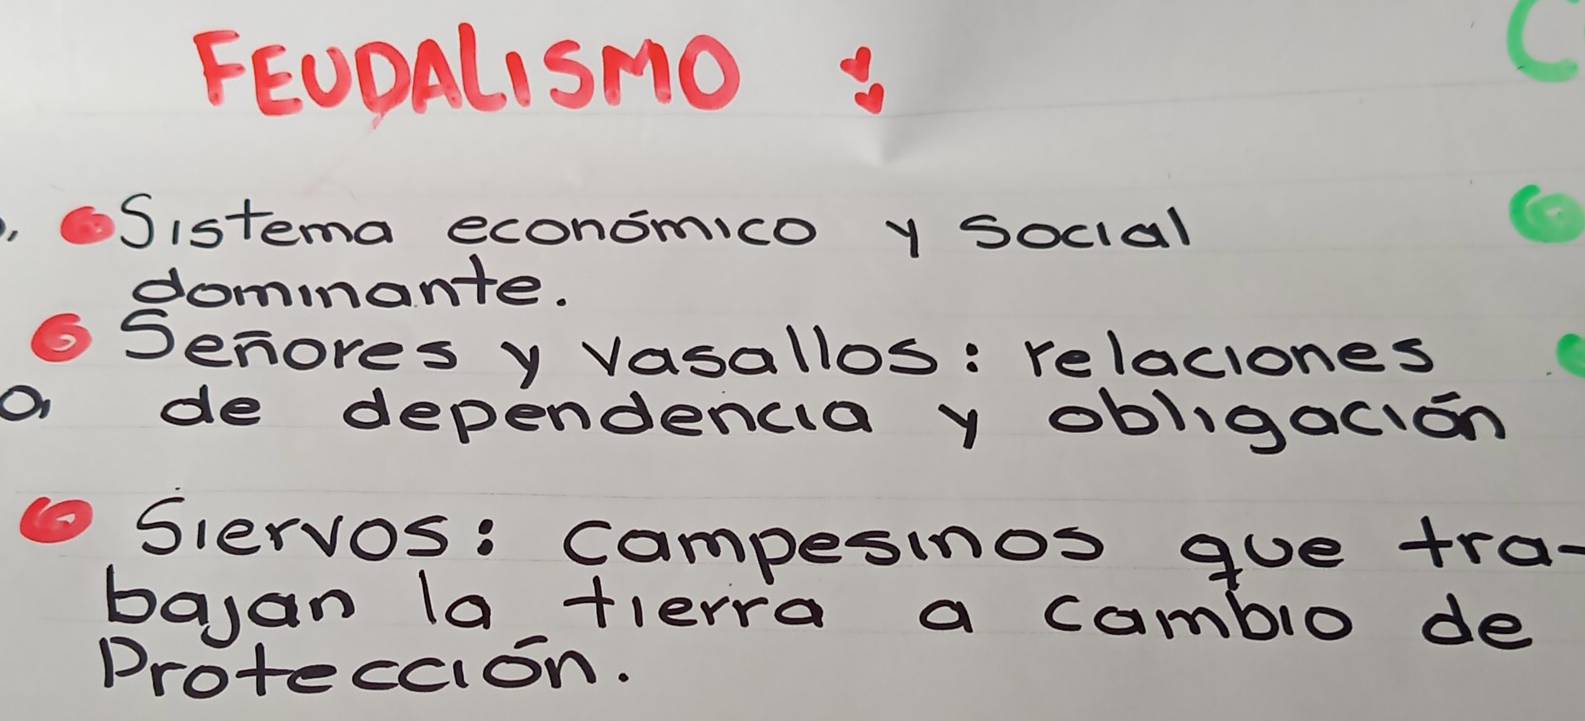 FEUDALISMO :
Sistema económico y social
dominante.
Señores y vasallos: relaciones
de dependencia y obligación
Siervos: campesinos que tra-
bajan la tierra a cambio de
Protección.